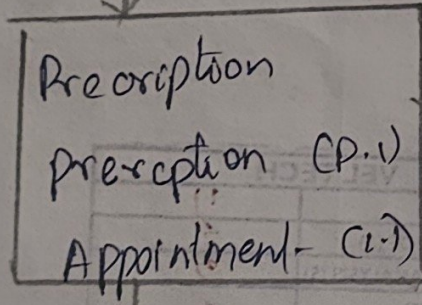 Precription
prercption (P.1)
Appointment- (1.1)